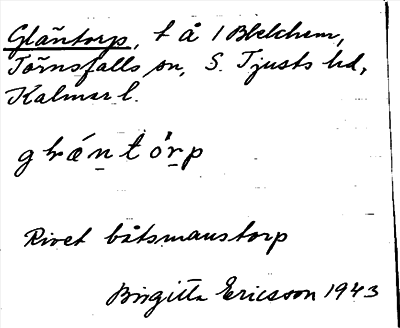 Gläntorp, t å / Blekhem,
Törnsfalls sn, S. Tjusts hd,
Kalmar l.
glæ´ntòrp
Rivet båtsmanstorp
Birgitta Ericsson 1943